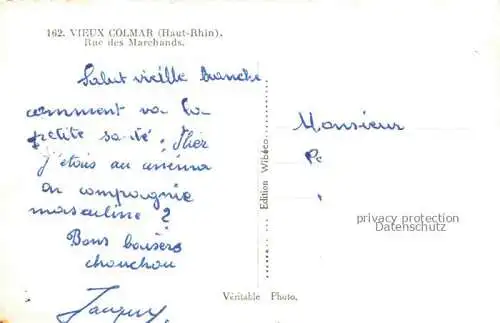 162. VIEUX COLMAR (Haut-Rhin).
Rue des Marchands.
Salut vieille branche.
comment va la
petite santé; Hier
j'étais au cinéma
en compagnie
masculine ?
Bons baisers
chouchou
Edition Wibéco
Monsieur
privacy protection
Datenschutz
Véritable Photo.